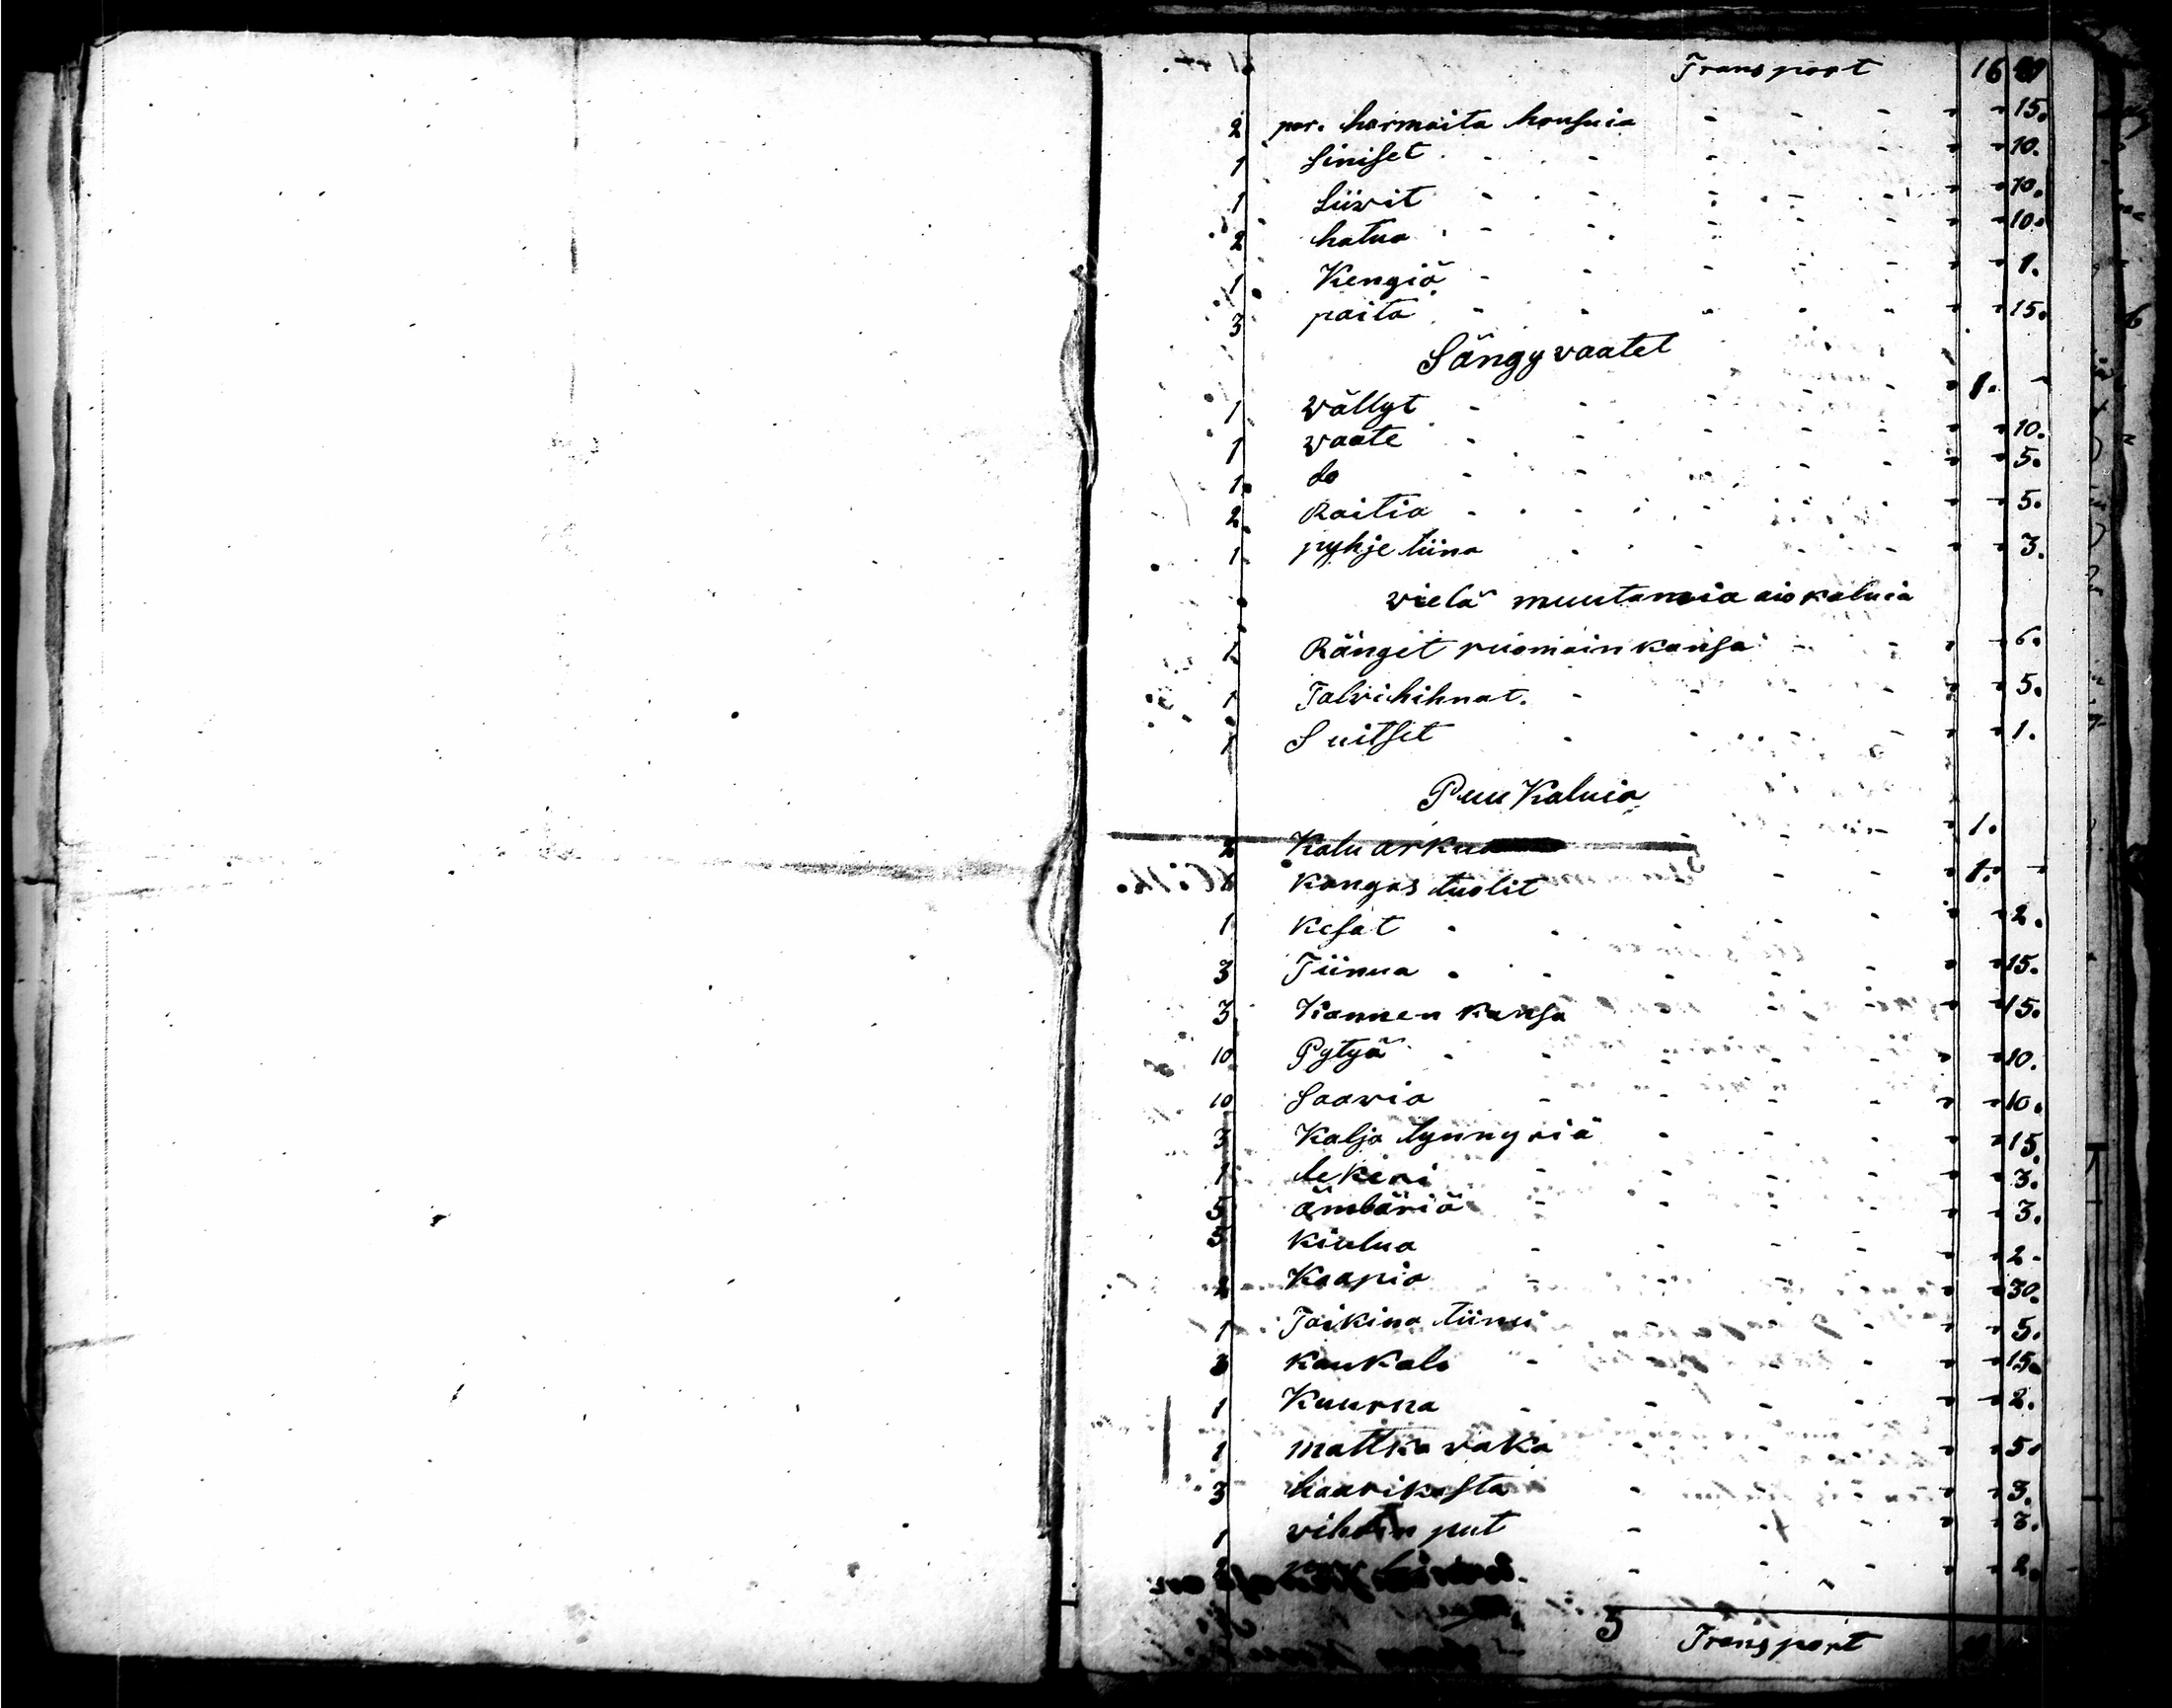 Transport 16
2 par. harmaita housuia " " 15.
1 Siniset " " 10.
1 Liivit " " 10.
2 hatua " " 10.
1 Kengiä " " 1.
3 paita " " 15.
Sängy vaatet
1 vällyt " 1. "
1 vaate " " 10.
1. do " " 5.
2. Raitia " " 5.
1. pyhje liina " " 3.
vielä muutamia aiokaluia
1. Ränget ruomain kansa " " 6.
1 Talvihihnat. " " 5.
1 Suitset " " 1.
Puu Kaluia
2 Kalu arkua " 1.
Kangas tuolit " 1. "
1 Kesat " " 2.
3 Tiinua " " 15.
3. Kannen kansa " " 15.
10 Pytyä " " 10.
10 Saavia " " 10.
3 Kalja lynnyriä " " 15.
1 lekeri " " 3.
5 ämbäriä " " 3.
5 Kiulua " " 2.
2 Kaapia " " 30.
1 Taikina tiinu " " 5.
3 Kaukalo " " 15.
1 Kuurna " " 2.
1 mattka vaka " " 5.
3 haarikasta " " 3.
1 put " " 3.
2 " " 2.
5 Transport